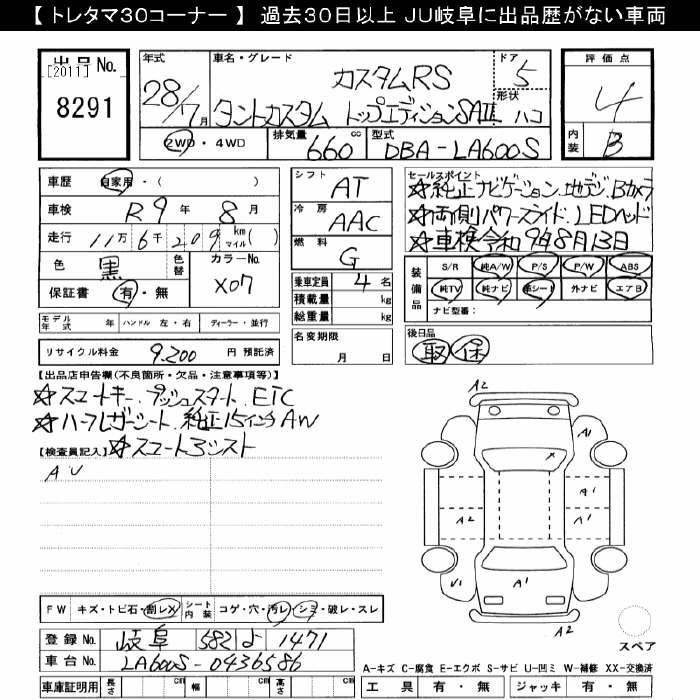 【 トレタマ30コーナー 】 過去30日以上 JU岐阜に出品歴がない車両
出品No.
[2011]
8291
年式
28/7月
車名・グレード
カスタムRS
タントカスタム トップエディションSAⅢ
ドア
5
形状
ハコ
評価点
4
内装
B
2WD・4WD
排気量 660 cc
型式 DBA-LA600S
車歴 自家用・( )
車検 R9年 8月
走行 11万 6千 209 km マイル( )
色 黒 色替
カラーNo. X07
保証書 有・無
シフト AT
冷房 AAC
燃料 G
乗車定員 4名
積載量 kg
総重量 kg
名変期限
月 日
セールスポイント
☆純正ナビゲーション.地デジ.Bカメラ
☆両側パワースライド.LEDヘッド
☆車検令和9年8月13日
装備品
S/R 純A/W P/S P/W ABS
純TV 純ナビ 革シート 外ナビ エアB
ナビ型番:
モデル年式 年 ハンドル 左・右 ディーラー・並行
リサイクル料金 9,200 円 預託済
後日品
取 保
【出品店申告欄(不良箇所・欠品・注意事項等)】
☆スマートキー.プッシュスタート.ETC
☆ハーフレザーシート.純正15インチAW
☆スマートアシスト
【検査員記入】
A U
A2
A1
A1
A2
A1
U1
A1
A2
スペア
FW キズ・トビ石・割レX シート内装 コゲ・穴・汚レ・シミ・破レ・スレ
登録No. 岐阜 582 よ 1471
車台No. LA600S-0436586
車庫証明用 長さ cm 幅 cm 高さ cm
A-キズ C-腐食 E-エクボ S-サビ U-凹ミ W-補修 XX-交換済
工具 有・無 ジャッキ 有・無